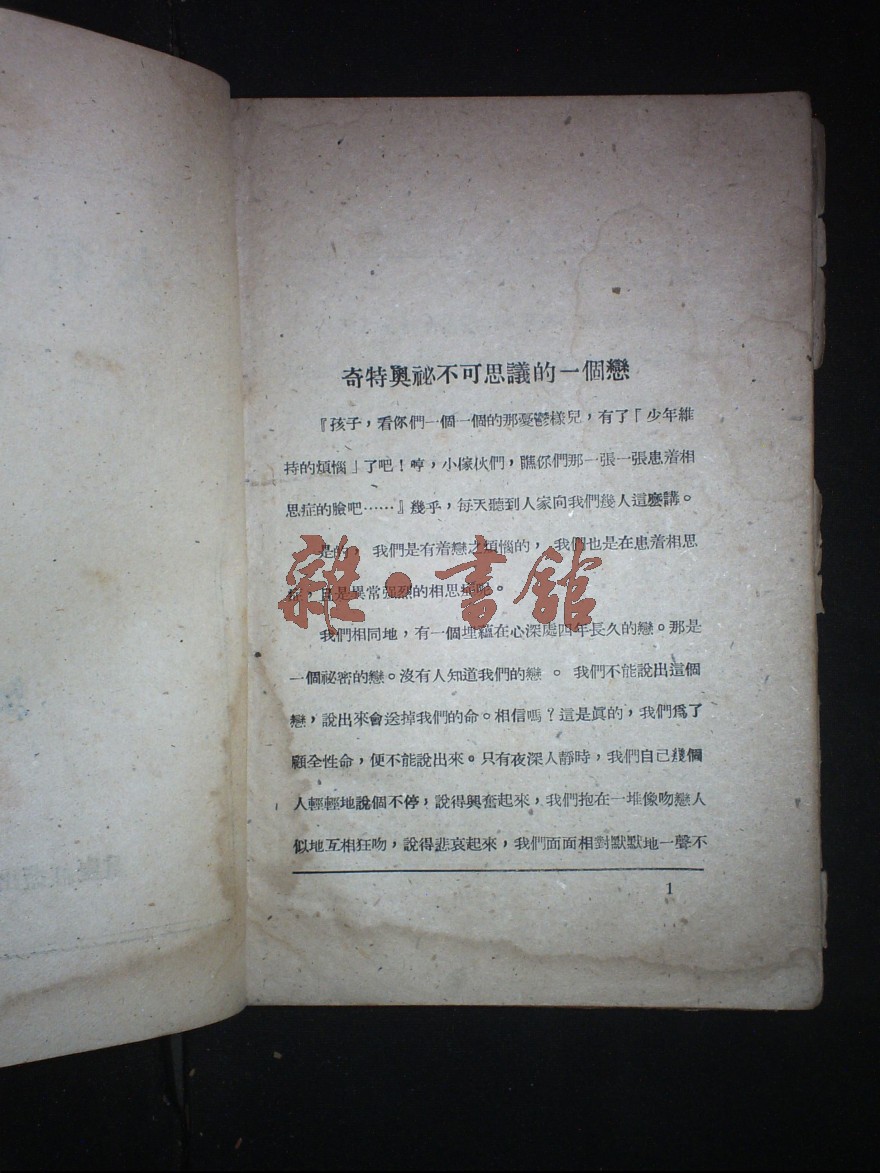 奇特奧祕不可思議的一個戀
『孩子，看你們一個一個的那憂鬱樣兒，有了「少年維
持的煩惱」了吧！哼，小傢伙們，瞧你們那一張一張患着相
思症的臉吧……』幾乎，每天聽到人家向我們幾人這麽講。
是的，我們是有着戀之煩惱的，我們也是在患着相思
症，且是異常强烈的相思症呢。
我們相同地，有一個埋藏在心深處四年長久的戀。那是
一個祕密的戀。沒有人知道我們的戀。我們不能說出這個
戀，說出來會送掉我們的命。相信嗎？這是眞的，我們爲了
顧全性命，便不能說出來。只有夜深人靜時，我們自己幾個
人輕輕地說個不停，說得興奮起來，我們抱在一堆像吻戀人
似地互相狂吻，說得悲哀起來，我們面面相對默默地一聲不
1
雜·書館